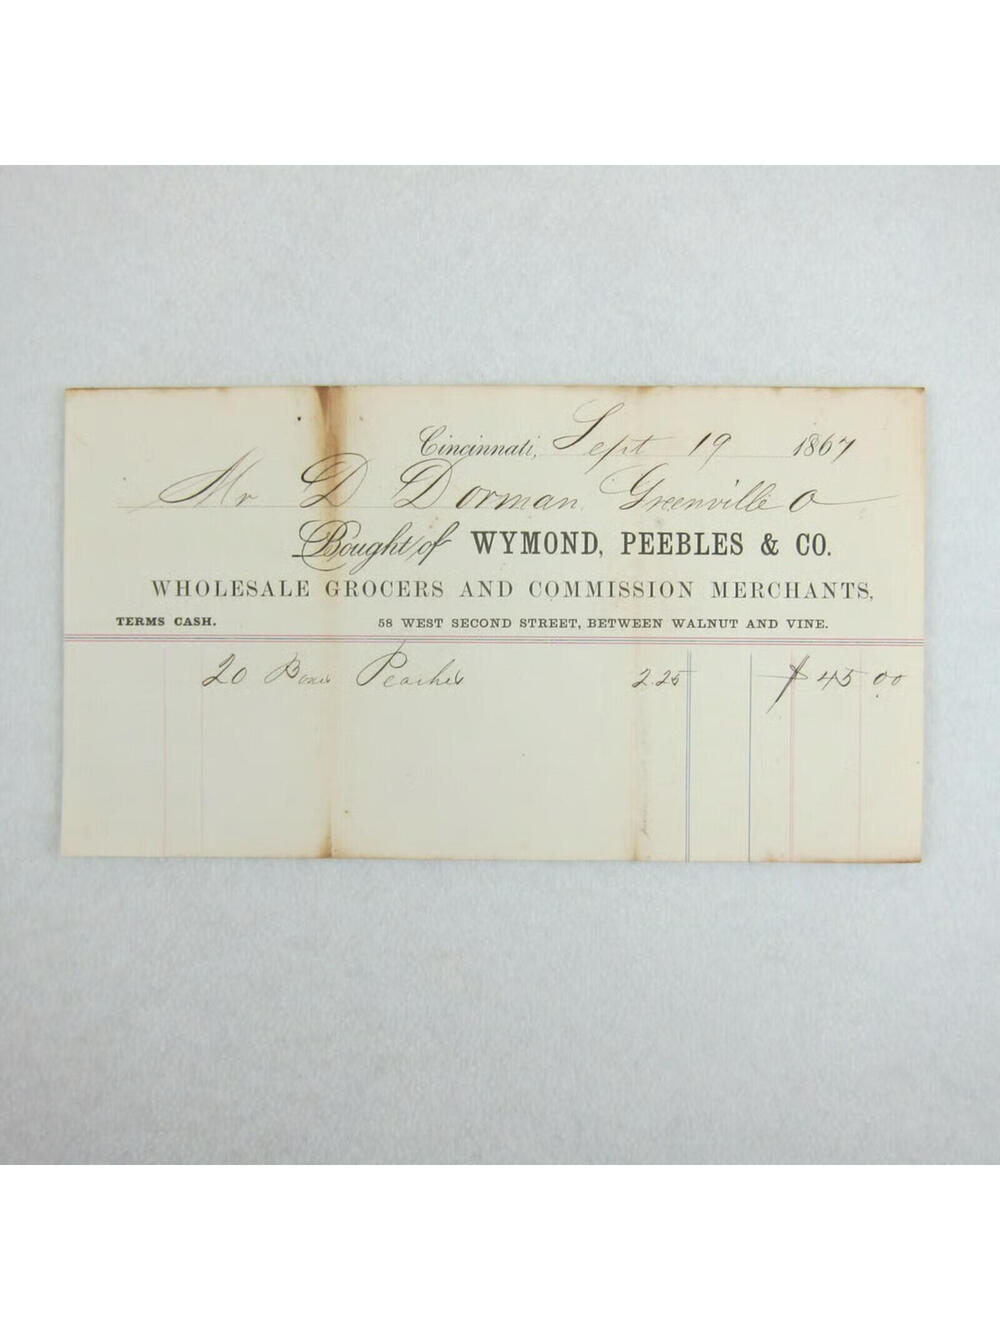 Cincinnati, Sept 19 1867
Mr D Dorman Greenville O
Bought of WYMOND, PEEBLES & CO.
WHOLESALE GROCERS AND COMMISSION MERCHANTS,
TERMS CASH. 58 WEST SECOND STREET, BETWEEN WALNUT AND VINE.
20 Boxes Peaches 2.25 $ 45 00